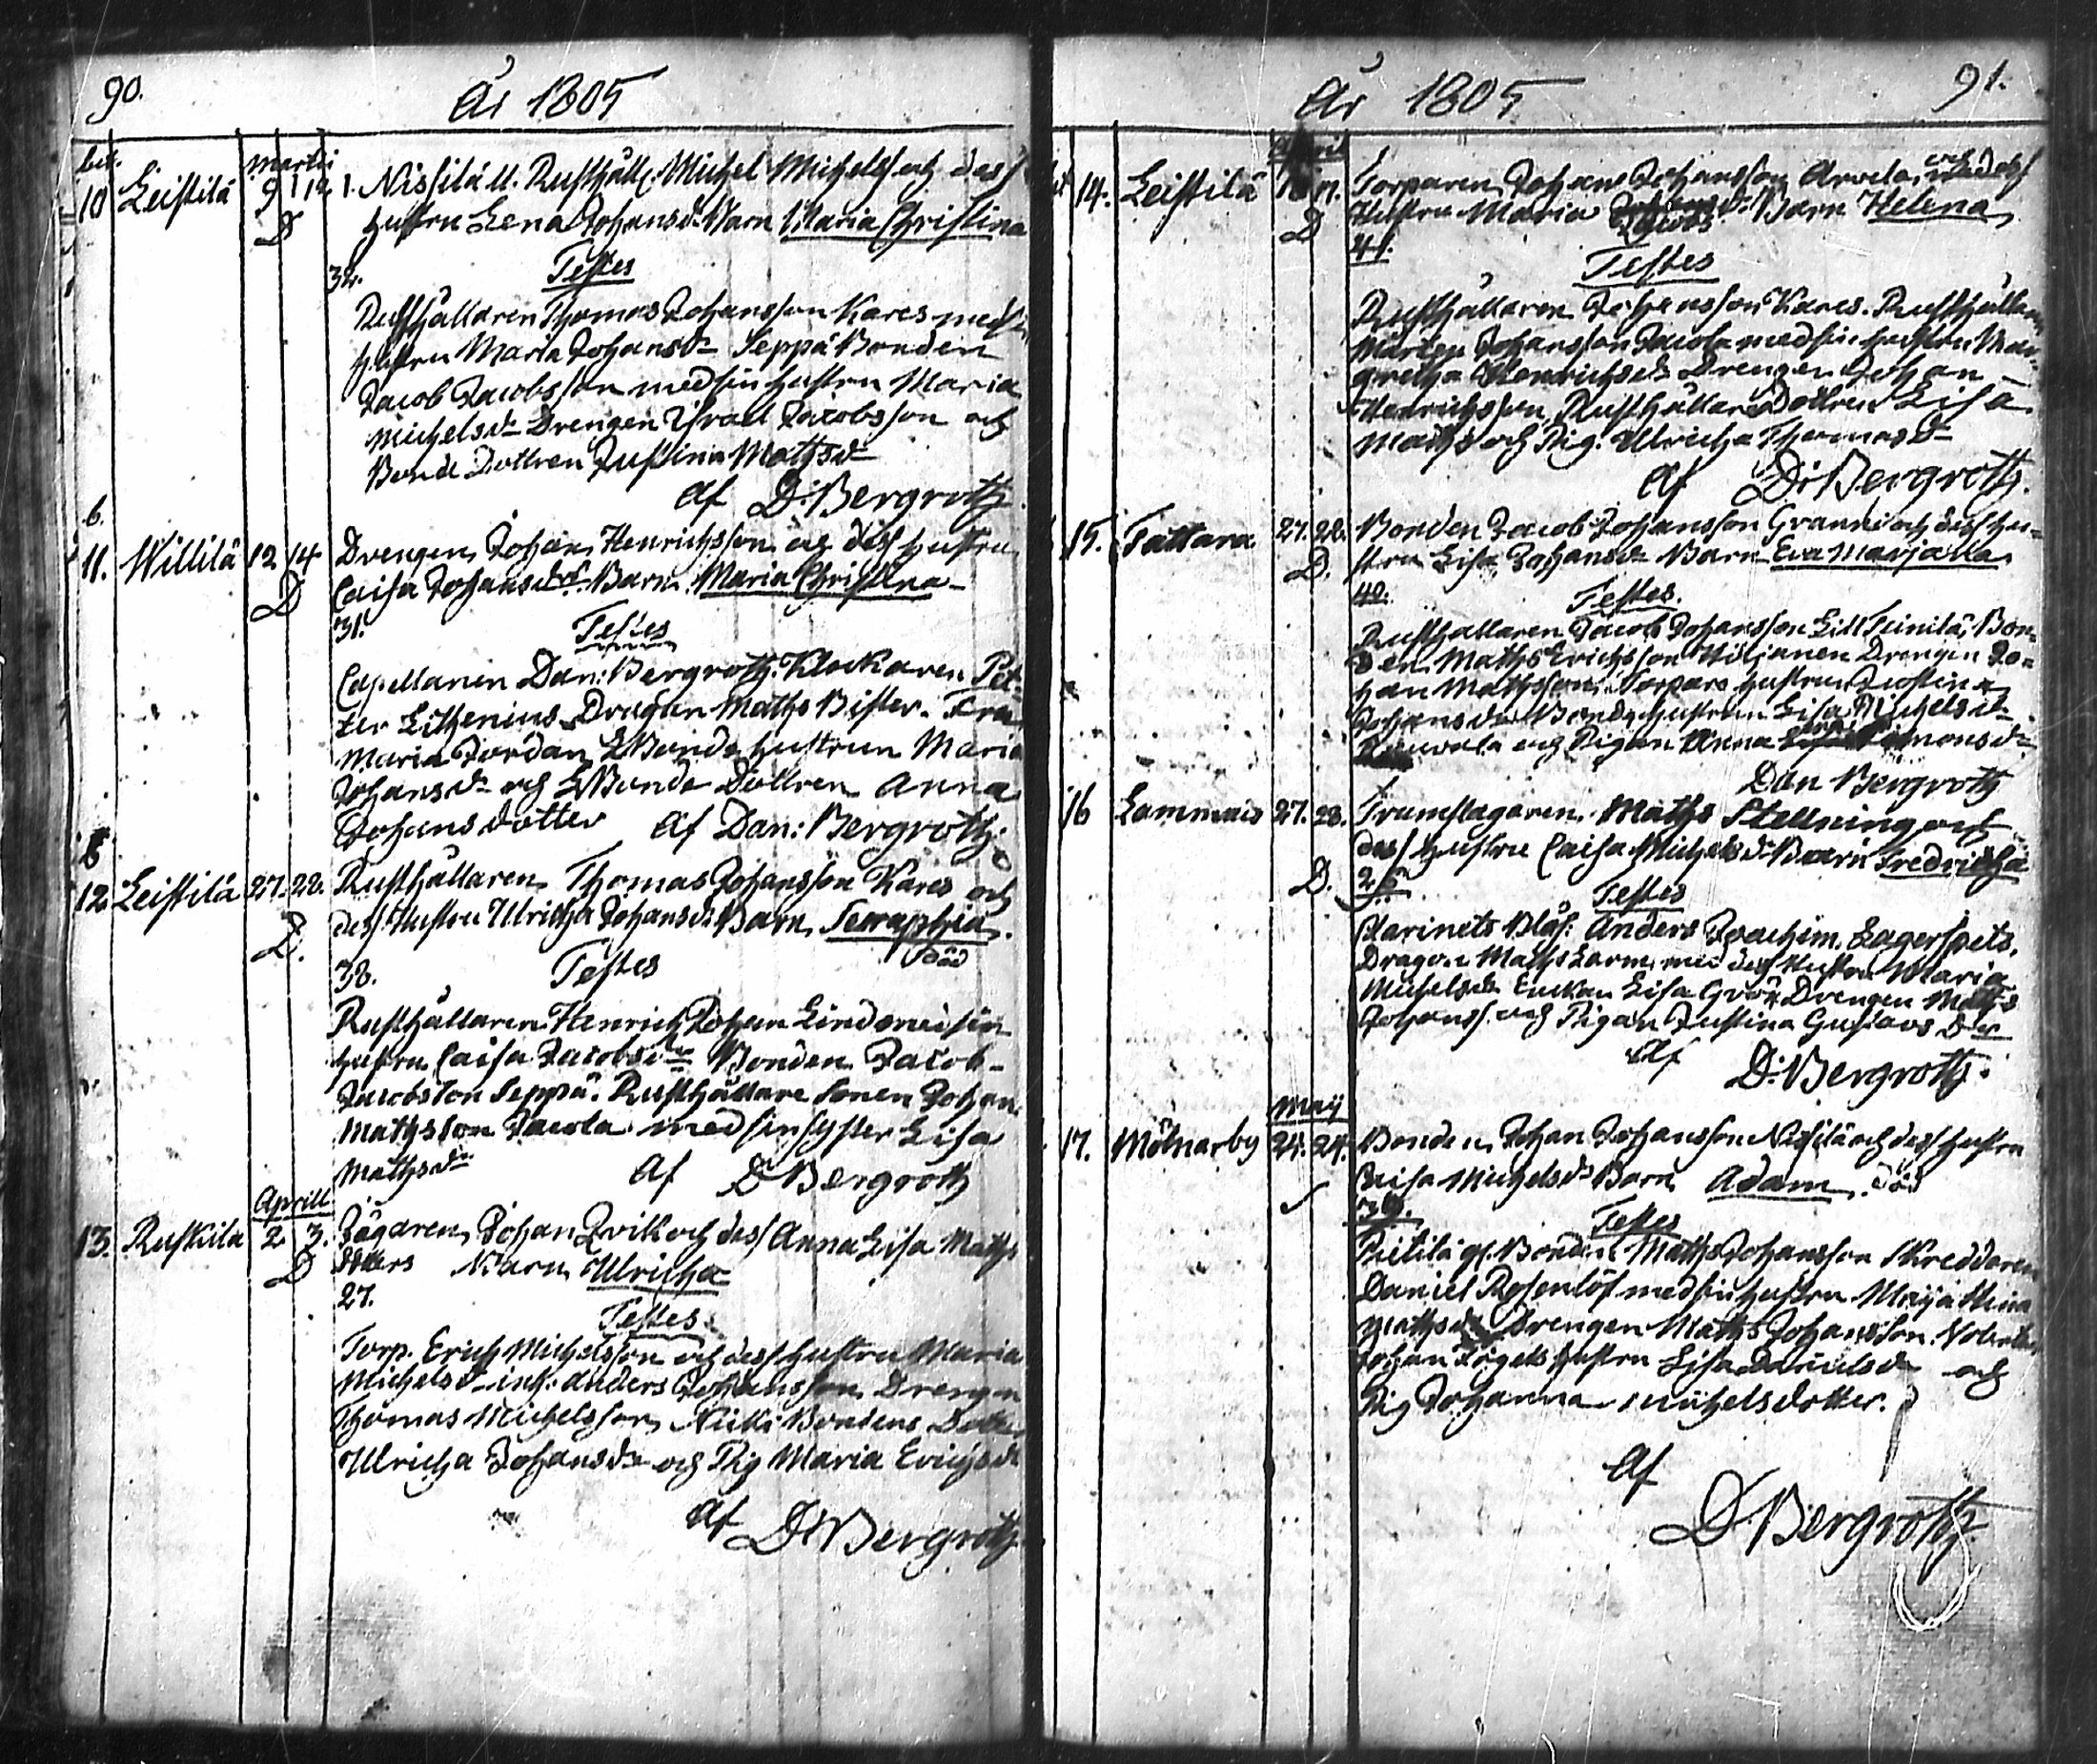 90.
År 1805
Martii
10 Leistilä 9 12 1. Nissilä Rusth. Michel Michelss. och dess
D Hustru Lena Johansdr Barn Maria Christina
32. Testes
Rusthållaren Thomas Johansson Kares med
Hustru Maria Johansdr Seppä Bonden
Jacob Jacobsson med sin hustru Maria
Michelsdr Drengen Israel Jacobsson och
Bonde Dottren Justina Mathsdr
af D: Bergroth
11. Willilä 12 14 Drengen Johan Henrichsson och dess hustru
D Caisa Johansdr Barn Maria Christina
31. Testes
Capellanen Dan: Bergroth. Klockaren Pet-
ter Lithenius Dragon Maths Bister. Fru
Maria Jordan Bonde hustrun Maria
Johansdr och Bonde Dottren Anna
Johansdotter af Dan: Bergroth.
12 Leistilä 27. 28. Rusthållaren Thomas Johansson Kares och
D. dess Hustru Ulricha Johansdr Barn Seraphia.
död
38. Testes
Rusthållaren Henrich Johan Lind med sin
hustru Caisa Jacobsdr Bonden Jacob
Jacobsson Seppä. Rusthållare Sonen Johan
Mathsson Jacola med sin syster Lisa
Mathsdr af D Bergroth
Aprill
13. Ruskila 2 3. Jägaren Johan Qvik och dess Anna Lisa Maths
D dotters Barn Ulricha
27.
Testes
Torp. Erich Michelsson och dess hustru Maria
Michelsdr inh: Anders Johansson Drengen
Thomas Michelsson Bondens Dotter
Ulricha Johansdr och Pig Maria Erichsdr
af D: Bergroth
91.
År 1805
April
14. Leistilä Torparen Johan Johansson Arvela och dess
D Hustru Maria Jacobs dr Barn Helena
41. Testes
Rusthållaren Johansson Kares. Rusthållaren
Mårten Johansson Jacola med sin hustru Mar-
gretha Henrichsdr Drengen Johan
Henrichsson, Rusthållare Dottren Lisa
Maths och Pig. Ulricha Thomasdr
af D: Bergroth.
15. Tattara 27. 28. Bonden Jacob Johansson Granni och dess hu-
D. stru Lisa Johansdr Barn Eva Marjana
40. Testes.
Rusthållaren Jacob Johansson Lill Teinilä, Bon-
den Maths Erichsson Hiljanen Drengen Jo-
han Mathsson, Torpare hustrun Justina
Johansdr Bonde hustrun Lisa Michelsdr
och Pigan Anna Simonsdr
Dan Bergroth
16 Lammais 27. 28. Trumslagaren Maths Stellning och
dess hustru Caisa Michelsdr Barn Fredricha
D. Testes
Clarinets Blås: Anders Joachim Lagerspets.
Dragon Maths Larm med dess Hustru Maria
Michelsdr Enckan Lisa Grön Drengen Maths
Johanss. och Pigan Justina Gustavs Dr
af D: Bergroth.
Maij
17. Mölnarby 24. 24. Bonden Johan Johansson Nissilä och dess hustru
Caisa Michelsdr Barn Adam. död
39. Testes
Bonden Maths Johansson Skreddaren
Daniel Rosenlöf med sin hustru Maija Stina
Mathsdr Drengen Maths Johansson
Johan hustru Lisa Danielsdr och
Pig Johanna Michelsdotter.
af
D: Bergroth